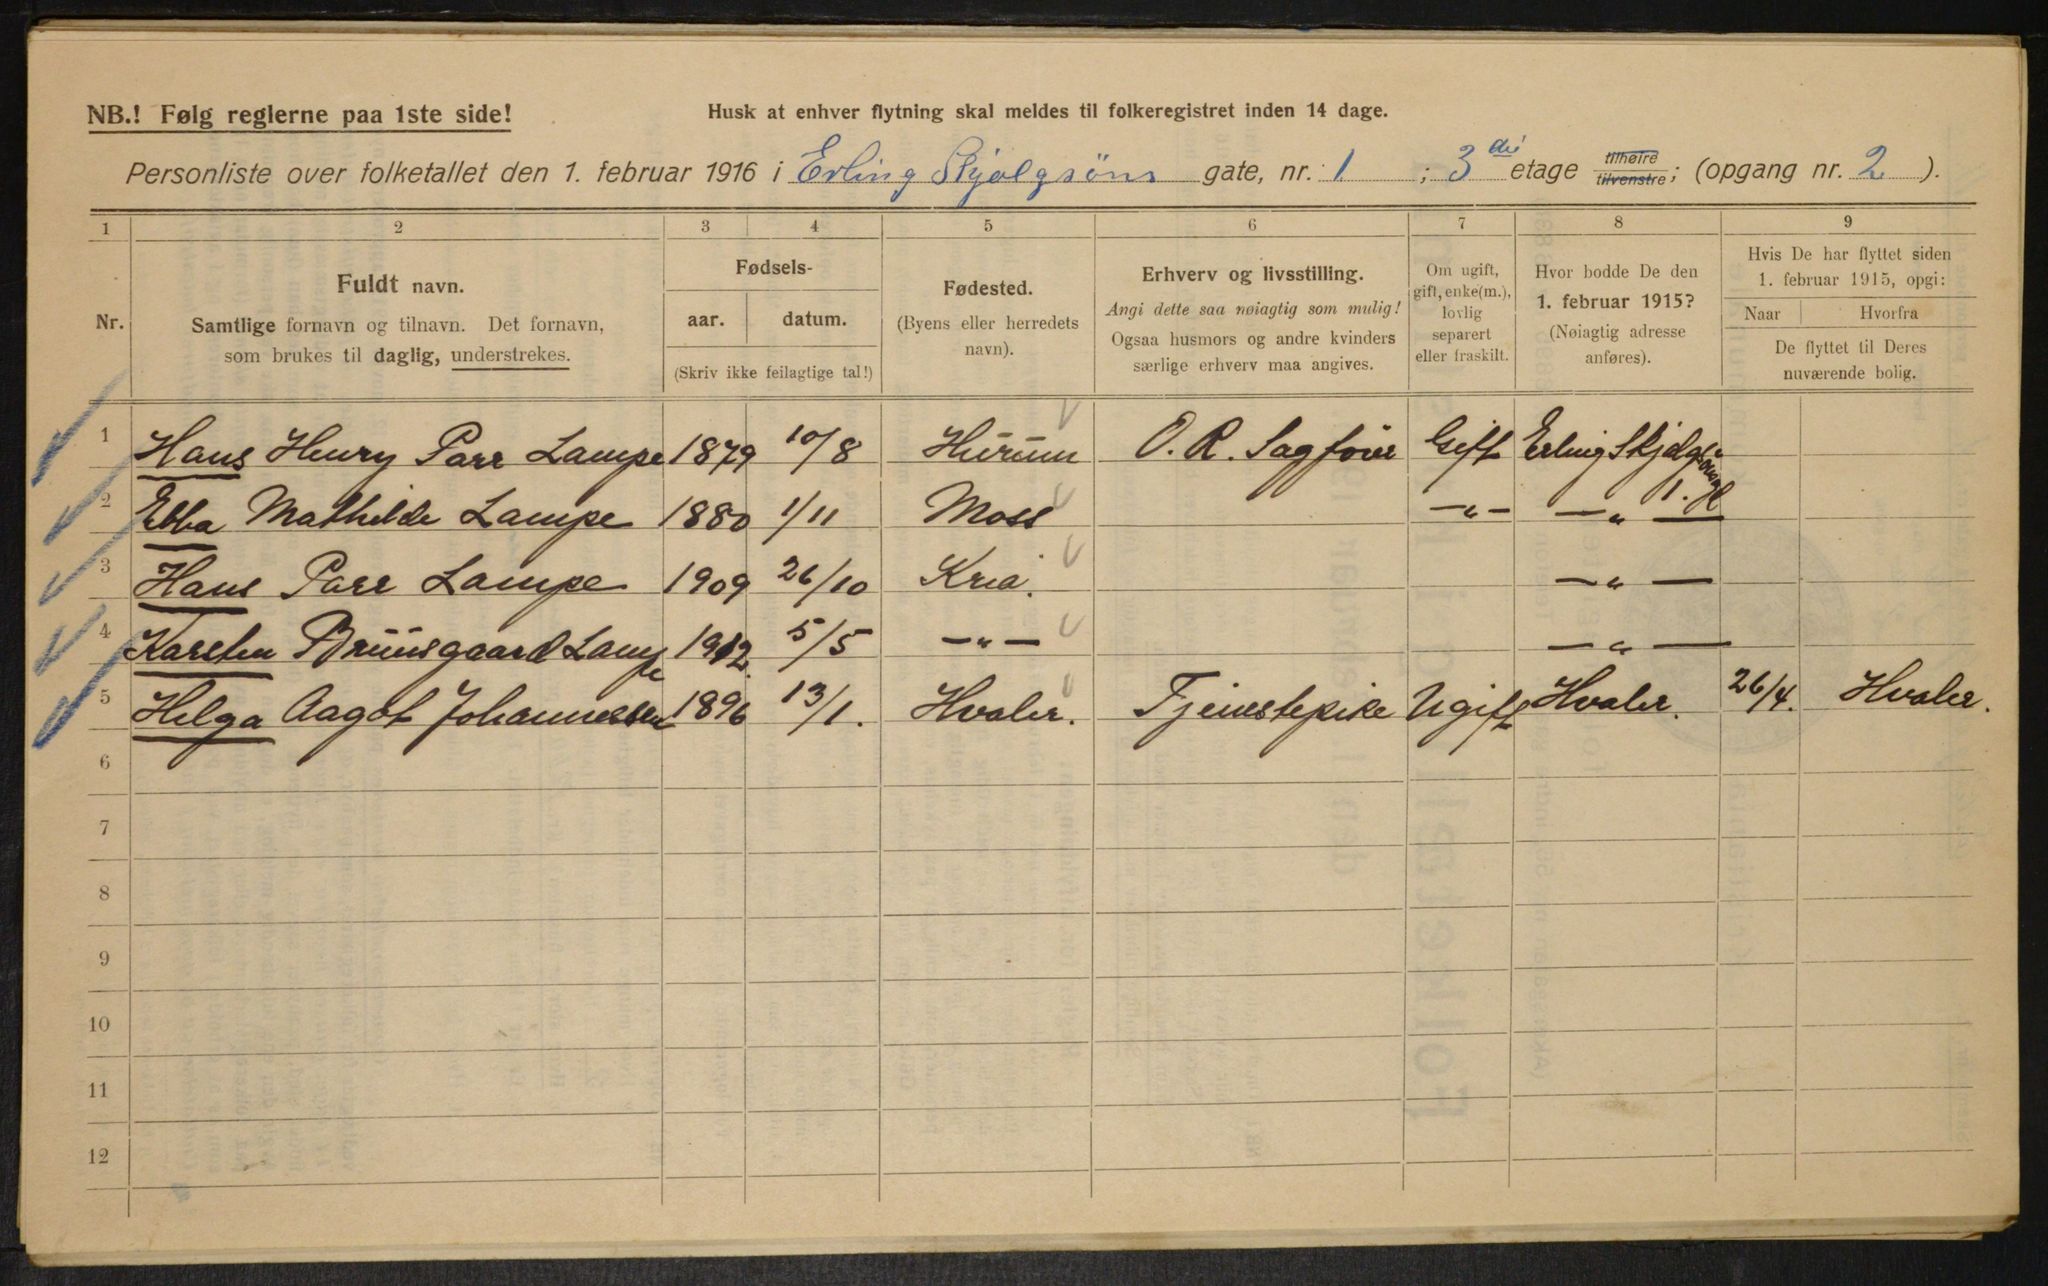 NB.! Følg reglerne paa 1ste side!
Husk at enhver flytning skal meldes til folkeregistret inden 14 dage.
Personliste over folketallet den 1. februar 1916 i Erling Skjalgsøns gate, nr. 1 ; 3die etage tilhøire tilvenstre; (opgang nr. 2 ).
1 2 3 4 5 6 7 8 9
Nr.
Fuldt navn.
Samtlige fornavn og tilnavn. Det fornavn,
som brukes til daglig, understrekes.
Fødsels-
aar. datum.
(Skriv ikke feilagtige tal!)
Fødested.
(Byens eller herredets
navn).
Erhverv og livsstilling.
Angi dette saa nøiagtig som mulig!
Ogsaa husmors og andre kvinders
særlige erhverv maa angives.
Om ugift,
gift, enke(m.),
lovlig
separert
eller fraskilt.
Hvor bodde De den
1. februar 1915?
(Nøiagtig adresse
anføres).
Hvis De har flyttet siden
1. februar 1915, opgi:
Naar Hvorfra
De flyttet til Deres
nuværende bolig.
1 Hans Henry Parr Lampe 1879 10/8 Hurum O. R. Sagfører Gift Erling Skjalgsønsgt 1.
2 Ebba Mathilde Lampe 1880 1/11 Moss —„— —„—
3 Hans Parr Lampe 1909 26/10 Kria. —„—
4 Karsten Bruusgaard Lampe 1912 5/5 —„— —„—
5 Helga Aagot Johannessen 1896 13/1. Hvaler. Tjenestepike Ugift Hvaler. 26/4. Hvaler.
6
7
8
9
10
11
12